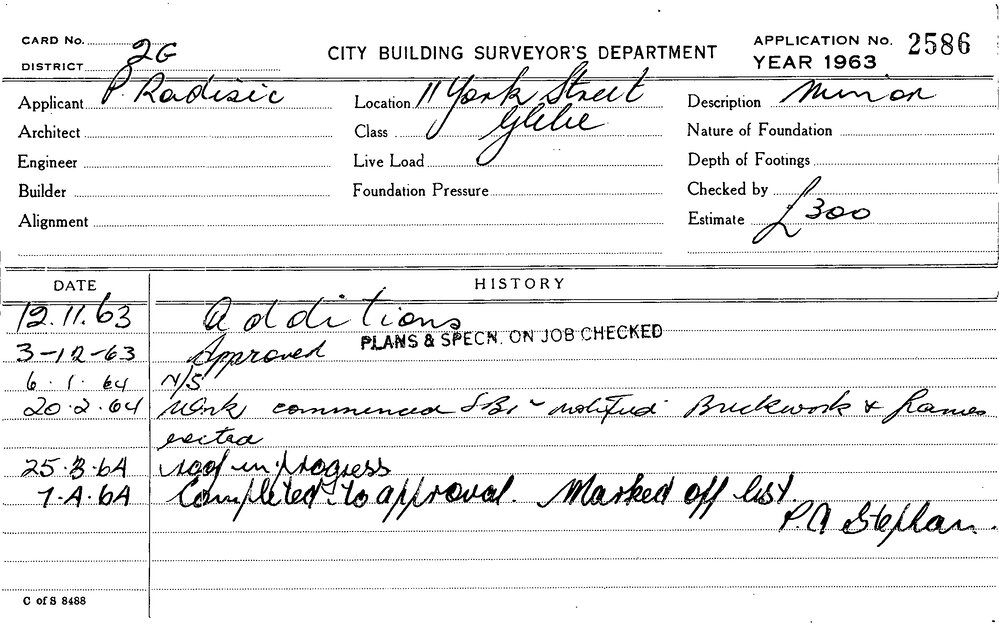 CARD No.
DISTRICT 2G
CITY BUILDING SURVEYOR'S DEPARTMENT
APPLICATION No. 2586
YEAR 1963
Applicant P. Radisic
Location 11 York Street
Glebe
Description Minor
Architect
Class
Nature of Foundation
Engineer
Live Load
Depth of Footings
Builder
Foundation Pressure
Checked by
Alignment
Estimate £300
DATE
HISTORY
12.11.63 Additions
3-12-63 Approved PLANS & SPECN. ON JOB CHECKED
6.1.64 N/S
20.2.64 Work commenced notified Brickwork & frames
erected
25.3.64 roof in progress
7.4.64 Completed to approval. Marked off list.
P. A Stephan.
C of S 8488